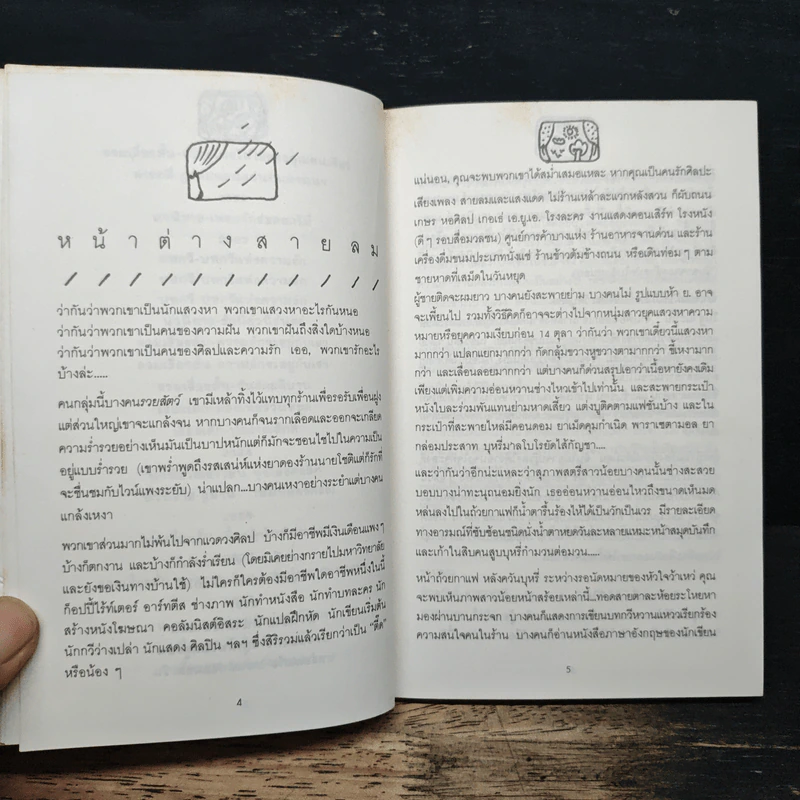 หน้าต่างสายลม
ว่ากันว่าพวกเขาเป็นนักแสวงหา พวกเขาแสวงหาอะไรกันหนอ
ว่ากันว่าพวกเขาเป็นคนของความฝัน พวกเขาฝันถึงสิ่งใดบ้างหนอ
ว่ากันว่าพวกเขาเป็นคนของศิลปและความรัก เออ, พวกเขารักอะไร
บ้างล่ะ.....
คนกลุ่มนี้บางคนรวยสัตว์ เขามีเหล้าทิ้งไว้แทบทุกร้านเพื่อรอรับเพื่อนฝูง
แต่ส่วนใหญ่เขาจะแกล้งจน หากบางคนก็จนรากเลือดและออกจะเกลียด
ความร่ำรวยอย่างเห็นมันเป็นบาปหนักแต่ก็มักจะชอนไชไปในความเป็น
อยู่แบบร่ำรวย (เขาพร่ำพูดถึงรสเสน่ห์แห่งยาดองร้านนายโชติแต่ก็รักที่
จะชื่นชมกับไวน์แพงระยับ) น่าแปลก...บางคนเหงาอย่างระยำแต่บางคน
แกล้งเหงา
พวกเขาส่วนมากไม่พ้นไปจากแวดวงศิลป บ้างก็มีอาชีพมีเงินเดือนแพงๆ
บ้างก็ตกงาน และบ้างก็กำลังร่ำเรียน (โดยมิเคยย่างกรายไปมหาวิทยาลัย
และยังขอเงินทางบ้านใช้) ไม่ใครก็ใครต้องมีอาชีพใดอาชีพหนึ่งในนี้
ก็อปปี้ไร้ท์เตอร์ อาร์ทตีส ช่างภาพ นักทำหนังสือ นักทำบทละคร นัก
สร้างหนังโฆษณา คอลัมนิสต์อิสระ นักแปลฝึกหัด นักเขียนเริ่มต้น
นักกวีว่างเปล่า นักแสดง ศิลปิน ฯลฯ ซึ่งสิริรวมแล้วเรียกว่าเป็น "ตี๊ด"
หรือน้อง ๆ
4
แน่นอน, คุณจะพบพวกเขาได้สม่ำเสมอแหละ หากคุณเป็นคนรักศิลปะ
เสียงเพลง สายลมและแสงแดด ไม่ร้านเหล้าละแวกหลังสวน ก็ผับถนน
เกษร หอศิลป เกอเธ่ เอ.ยู.เอ. โรงละคร งานแสดงคอนเสิร์ท โรงหนัง
(ดี ๆ รอบสื่อมวลชน) ศูนย์การค้าบางแห่ง ร้านอาหารจานด่วน และร้าน
เครื่องดื่มขนมประเภทนั่งแช่ ร้านข้าวต้มข้างถนน หรือเดินท่อม ๆ ตาม
ชายหาดที่เสม็ดในวันหยุด
ผู้ชายติดจะผมยาว บางคนยังสะพายย่าม บางคนไม่ รูปแบบห้า ย. อาจ
จะเพี้ยนไป รวมทั้งวิธีคิดก็อาจจะต่างไปจากหนุ่มสาวยุคแสวงหาความ
หมายหรือยุคความเงียบก่อน 14 ตุลา ว่ากันว่า พวกเขาเดี๋ยวนี้แสวงหา
มากกว่า แปลกแยกมากกว่า กัดกลุ้มขวางหูขวางตามากกว่า ขี้เหงามาก
กว่า และเลื่อนลอยมากกว่า แต่บางคนก็ด่วนสรุปเอาว่าเนื้อหายังคงเดิม
เพียงแต่เพิ่มความอ่อนหวานช่างไหวเข้าไปเท่านั้น และสะพายกระเป๋า
หนังใบละร่วมพันแทนย่ามหาดเสี้ยว แต่งบูติคตามแฟชั่นบ้าง และใน
กระเป๋าที่สะพายไหล่มีคอนดอม ยาเม็ดคุมกำเนิด พาราเซตามอล ยา
กล่อมประสาท บุหรี่มาลโบโรยัดไส้กัญชา....
และว่ากันว่าอีกน่ะแหละว่าสุภาพสตรีสาวน้อยบางคนนั้นช่างสะสวย
บอบบางน่าทะนุถนอมยิ่งนัก เธออ่อนหวานอ่อนไหวถึงขนาดเห็นมด
หล่นลงไปในถ้วยกาแฟก็น้ำตารื้นร้องไห้ได้เป็นวักเป็นเวร มีรายละเอียด
ทางอารมณ์ที่ซับซ้อนชนิดนั่งน้ำตาหยดวันละหลายแหมะหน้าสมุดบันทึก
และเก้าในสิบคนสูบบุหรี่กำมวนต่อมวน.....
หน้าถ้วยกาแฟ หลังควันบุหรี่ ระหว่างรอนัดหมายของหัวใจว้าเหว่ คุณ
จะพบเห็นภาพสาวน้อยหน้าสร้อยเหล่านี้...ทอดสายตาละห้อยระโหยหา
มองผ่านบานกระจก บางคนก็แสดงการเขียนบทกวีหวานแหววเรียกร้อง
ความสนใจคนในร้าน บางคนก็อ่านหนังสือภาษาอังกฤษของนักเขียน
5